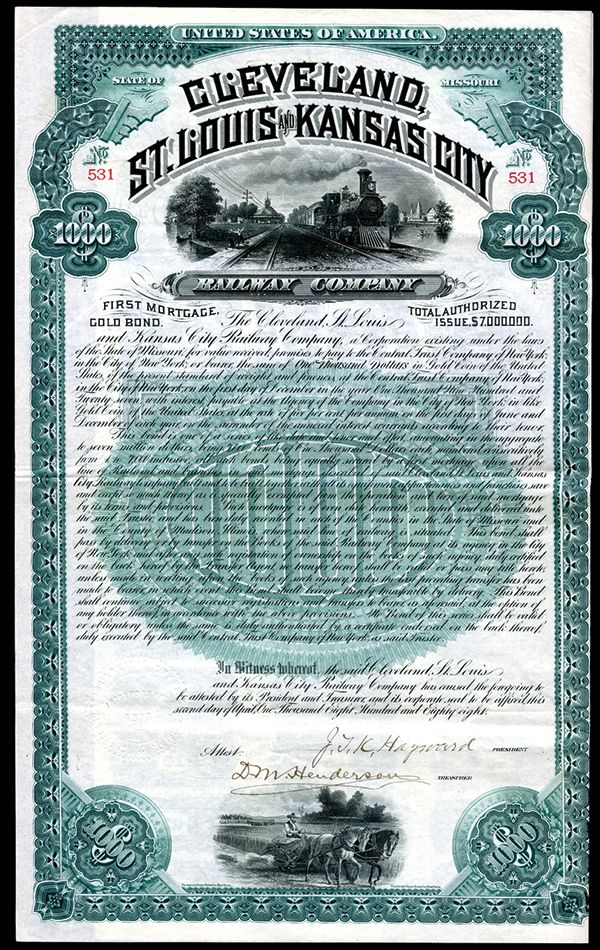 UNITED STATES OF AMERICA.
STATE OF MISSOURI
CLEVELAND,
ST. LOUIS AND KANSAS CITY
No 531
No 531
1000 1000
RAILWAY COMPANY
FIRST MORTGAGE. GOLD BOND.
TOTAL AUTHORIZED ISSUE, $7,000,000.
The Cleveland, St. Louis
and Kansas City Railway Company, a Corporation existing under the laws
of the State of Missouri, for value received, promises to pay to the Central Trust Company of New York,
in the City of New York, or bearer, the sum of One Thousand Dollars in Gold Coin of the United
States, of the present standard of weight and fineness, at the Central Trust Company of New York,
in the City of New York, on the first day of December in the year One Thousand Nine Hundred and
Twenty seven, with interest, payable at the Agency of the Company in the City of New York, in like
Gold Coin of the United States, at the rate of five per cent. per annum, on the first days of June and
December of each year, on the surrender of the annexed interest warrants according to their tenor.
This Bond is one of a series of like date and tenor and effect, amounting in the aggregate
to seven million dollars, being Bonds of One Thousand Dollars each, numbered consecutively
from 1 to 7000 inclusive, all said bonds being equally secured by a first mortgage upon all the
and except as such thereof as is specially exempted from the operation and lien of said mortgage
by its terms and provisions. Said mortgage has been duly executed and delivered unto
the said Trustee, and has been duly recorded in each of the Counties in the State of Missouri and
pass by delivery, or by transfer on the books of said Railway Company at its agency in the City
of New York, and after a registration of ownership hereof at such agency, duly certified
on the back hereof by the transfer agent, no transfer hereof shall be valid or pass any title hereto,
unless made in writing upon the books of such agency, unless the last preceding transfer has been
made to bearer, in which event this Bond shall become transferable by delivery. This Bond
shall continue subject to successive registrations and transfers to bearer, as aforesaid, at the option of
any holder thereof, in accordance with the above provisions. No Bond of this series shall be valid
or obligatory unless the same is duly authenticated by a certificate endorsed on the back thereof,
duly executed by the said Central Trust Company of New York as said Trustee.
In Witness whereof, the said Cleveland, St. Louis
and Kansas City Railway Company has caused the foregoing to
be attested by its President and Treasurer and its corporate seal to be affixed, this
second day of April One Thousand Eight Hundred and Eighty eight.
Attest: J.T.K. Hayward PRESIDENT
D.M. Henderson TREASURER
$1000 $1000